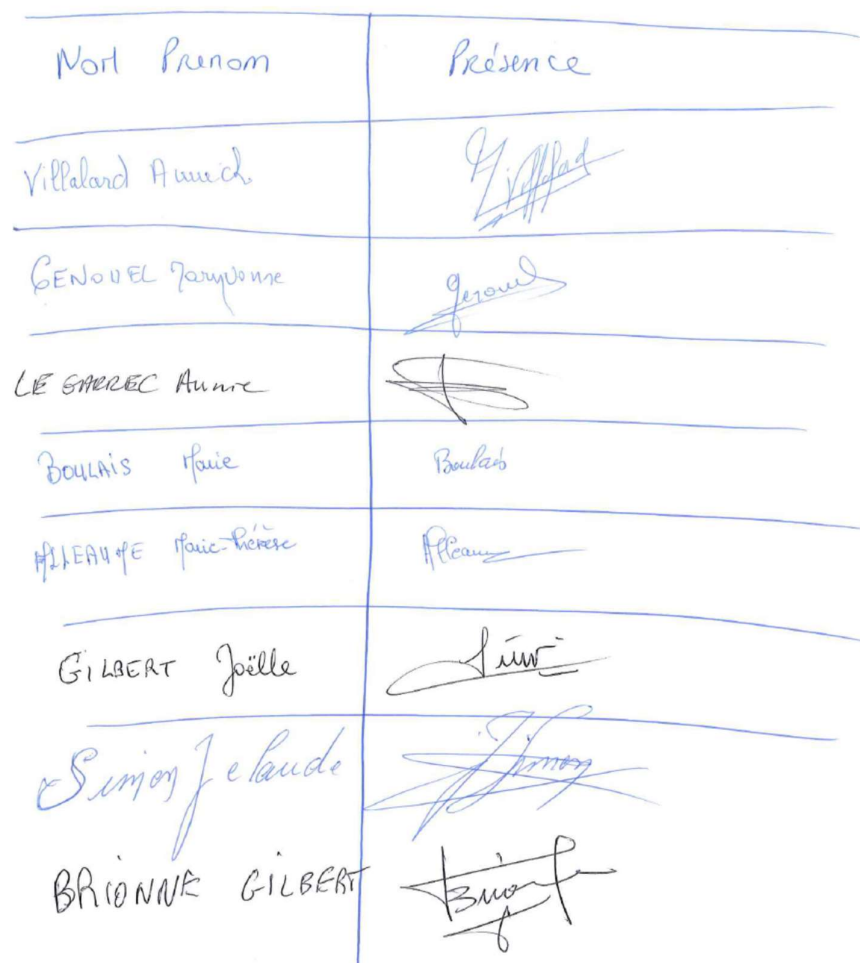 Nom Prenom Présence
Villalard Annick Villalard
GENOUEL Maryvonne Genouel
LE GARREC Annie
BOULAIS Marie Boulais
ALLEAUME Marie-Thérèse Alleaume
GILBERT Joëlle
Simon J Claude Simon
BRIONNE GILBERT